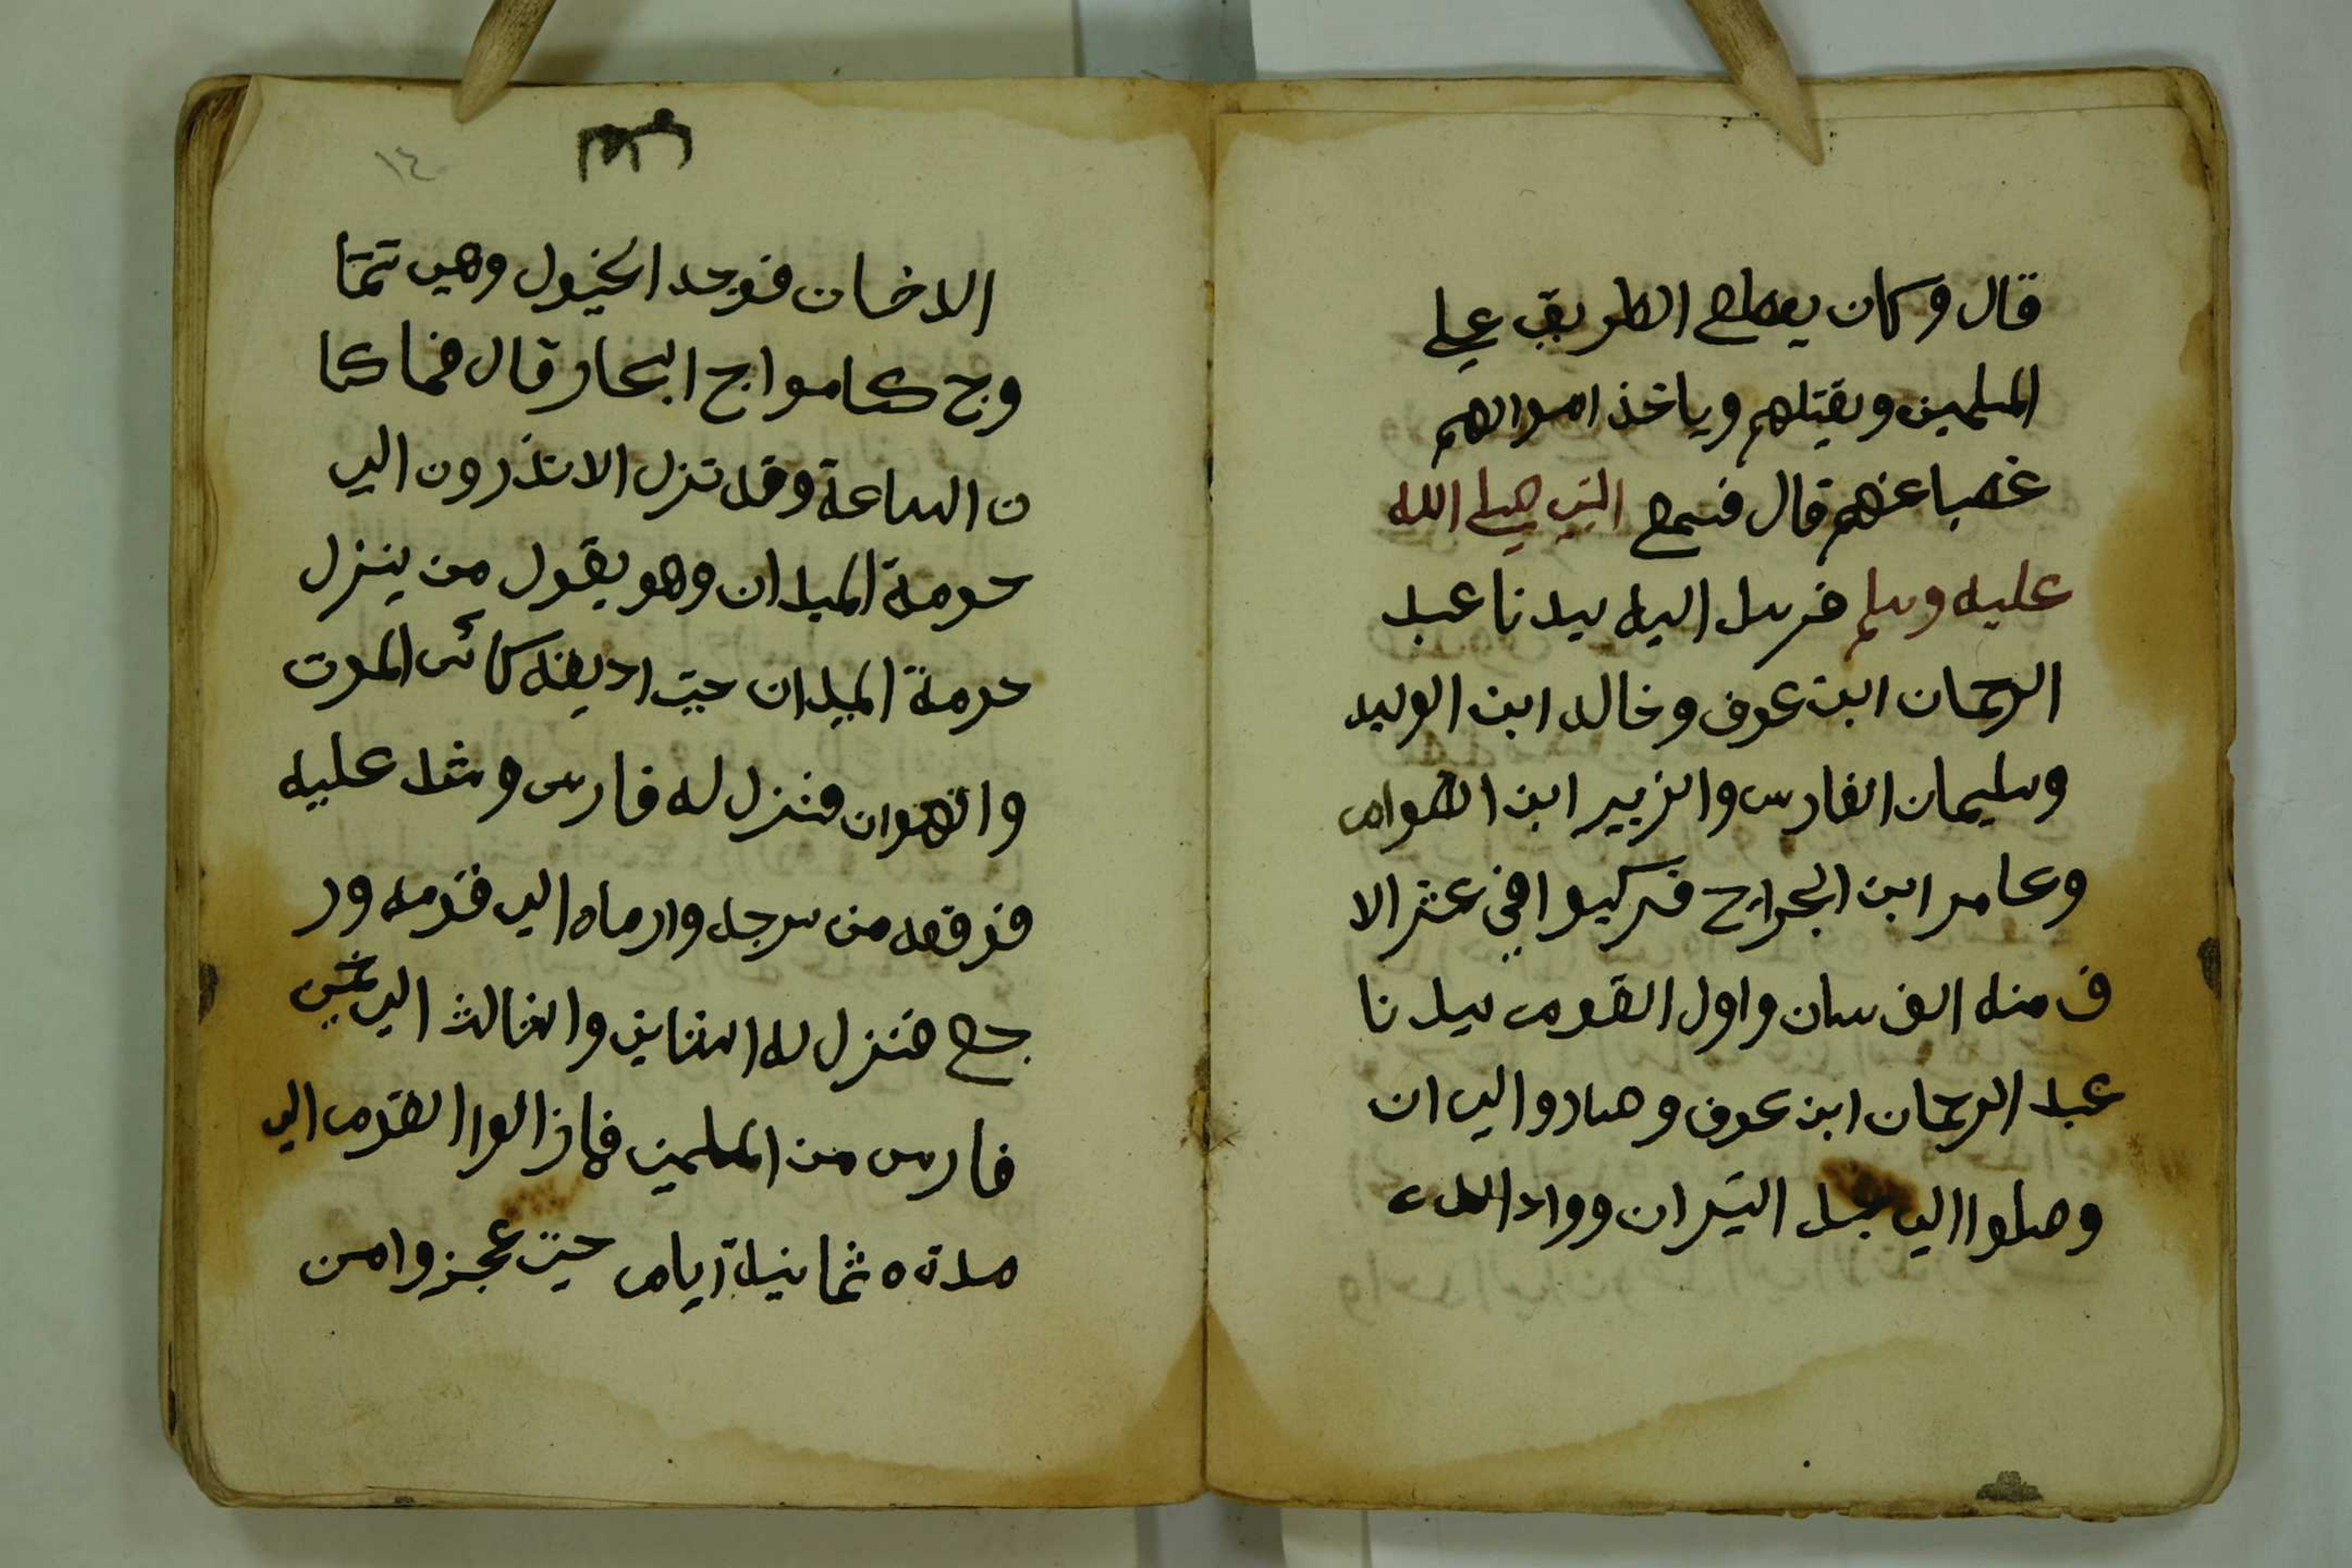 قال وكان يقطع الطريق علي
المسلمين ويقتلهم وياخذ اموالهم
غصبا عنهم قال فسمع النبي صلي الله
عليه وسلم فرسل اليه سيدنا عبد
الرحمان ابن عوف وخالد ابن الوليد
وسليمان الفارس والزبير ابن العوام
وعامر ابن الجراح فركبوا في عشر الا
ف منه الفرسان واول القوم سيدنا
عبد الرحمان ابن عوف وصاروا الي ان
وصلوا الي جبل النيران وواد
١٤
فوجد الخيول وهي تتما
وج كامواج البحار قال فما كا
ن الساعة وقد نزل الانذرون الي
حومة الميدان وهو يقول من ينزل
حومة الميدان حتي اديقه كائس الموت
والهوان فنزل له فارس وشد عليه
فرقعه من سرجه وارماه الي قومه ور
جع فنزل له الثاني والثالث الي
فارس من المسلمين فمازالوا القوم الي
مدة ه ثمانية ايام حتي عجزوا من